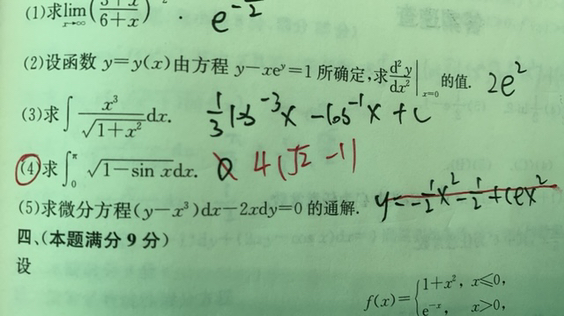 (1)求lim x→∞ (3+x / 6+x) . e^-1/2
(2)设函数 y=y(x)由方程 y-xe^y=1 所确定,求 d²y/dx² |x=0 的值. 2e²
(3)求∫ x³/√(1+x²) dx. 1/3 cos^-3 x - cos^-1 x + c
(4)求∫₀^π √(1-sin x)dx. 4(√2-1)
(5)求微分方程(y-x³)dx-2xdy=0 的通解. y=-1/2x²-1/2+cex²
四、(本题满分 9 分)
设
f(x)={1+x², x≤0,
e^-x, x>0,